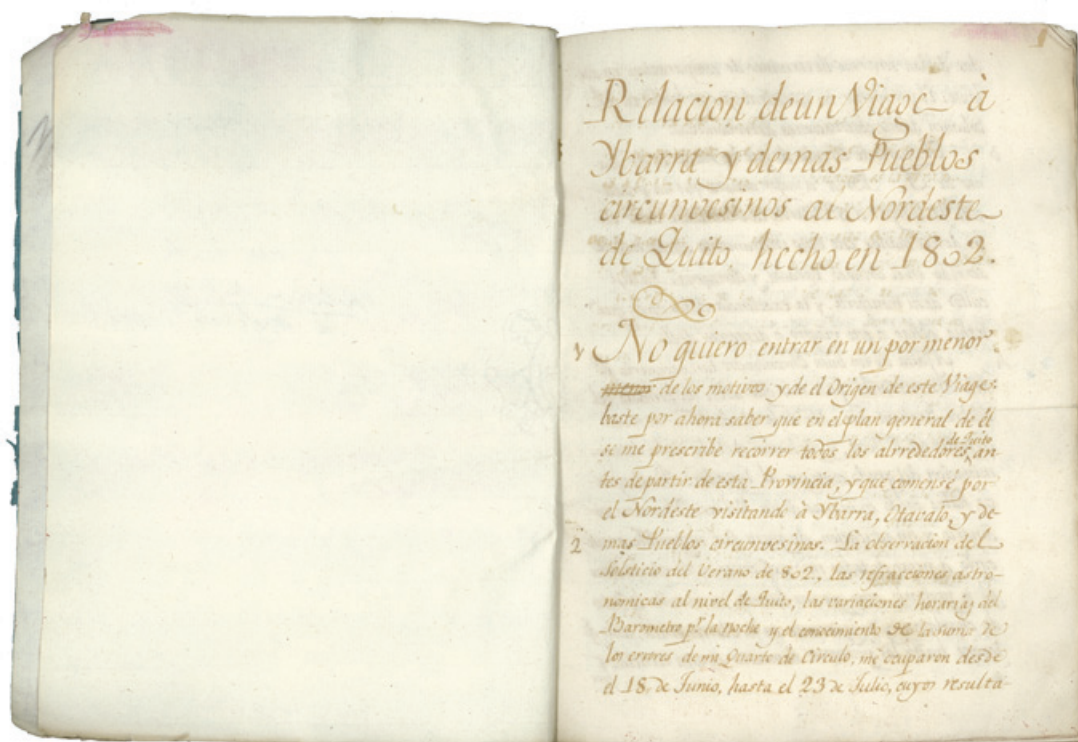 1
Relacion de un Viage à
Ybarra y demas Pueblos
circunvesinos al Nordeste
de Quito, hecho en 1802.
No quiero entrar en un por menor
menor de los motivos y de el Origen de este Viage:
baste por ahora saber que en el plan general de él
se me prescribe recorrer todos los alrrededores de Quito an
tes de partir de esta Provincia, y que comensé por
el Nordeste visitando à Ybarra, Otavalo, y de
2 mas Pueblos circunvesinos. La observacion del
Solsticio del Verano de 802, las refracciones astro-
nomicas al nivel de Quito, las variaciones horarias del
Barometro pr. la noche y el conocimiento de la suma de
los errores de mi Quarto de Circulo, me ocuparon desde
el 18, de Junio, hasta el 23 de Julio, cuyos resulta-